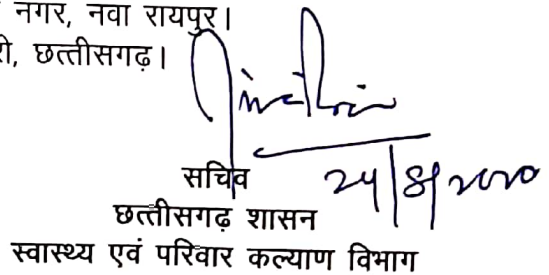 नगर, नवा रायपुर।
छत्तीसगढ़।
सचिव
24/8/2020
छत्तीसगढ़ शासन
स्वास्थ्य एवं परिवार कल्याण विभाग